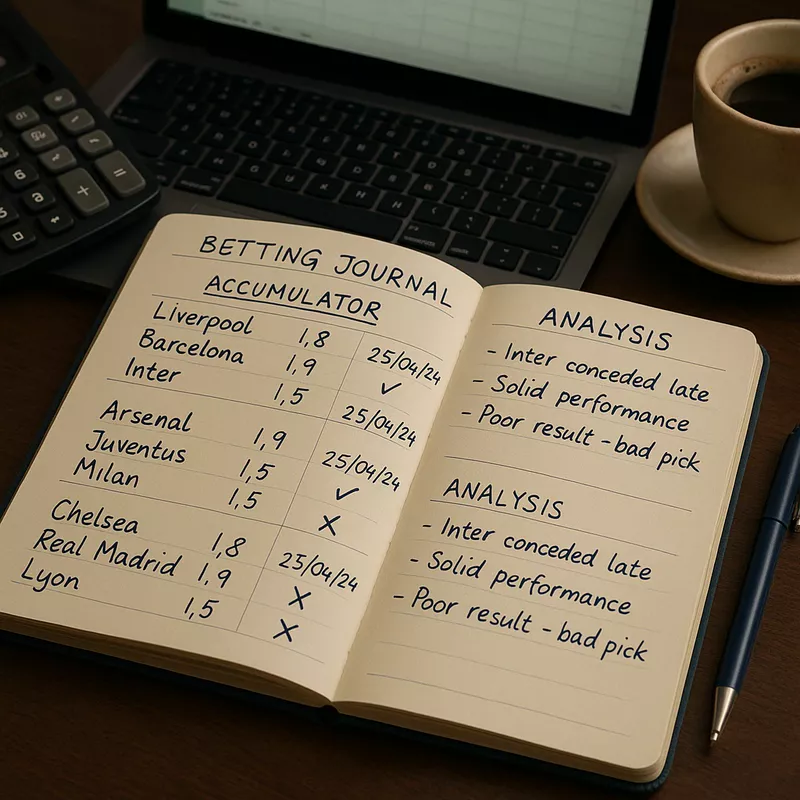 BETTING JOURNAL
ACCUMULATOR
Liverpool 1,8 25/04/24
Barcelona 1,9 ✓
Inter 1,5 25/04/24
Arsenal 1,9 25/04/24
Juventus 1,5 ✓
Milan 1,5 ✗
Chelsea 1,8 25/04/24
Real Madrid 1,9 ✗
Lyon 1,5 ✗
ANALYSIS
- Inter conceded late
- Solid performance
- Poor result - bad pick
ANALYSIS
- Inter conceded late
- Solid performance
- Poor result - bad pick